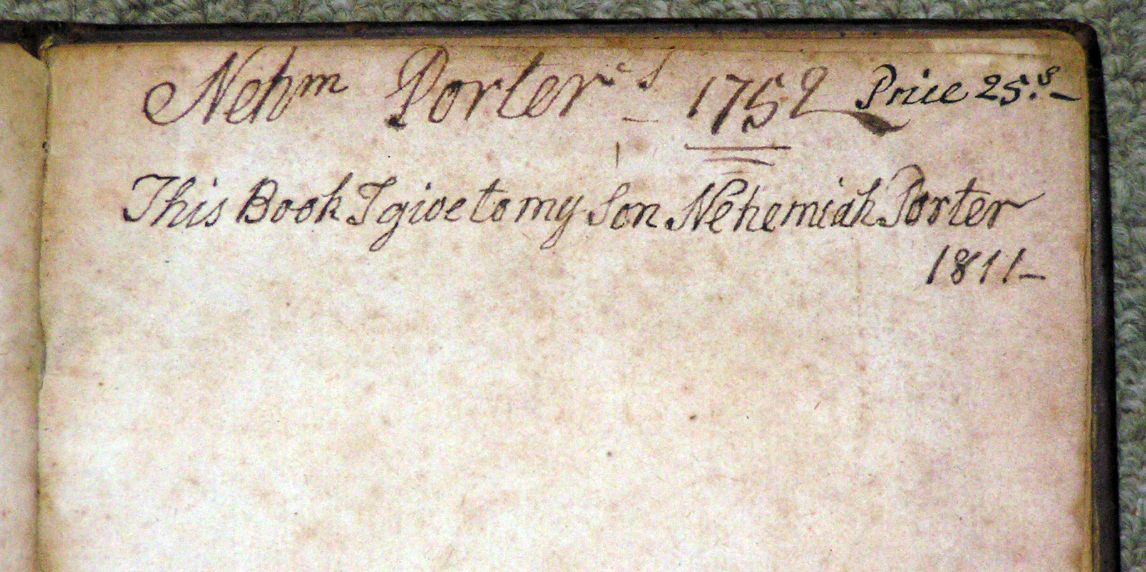 Nehm Porter's 1752 Price 25.s
This Book I give to my Son Nehemiah Porter
1811